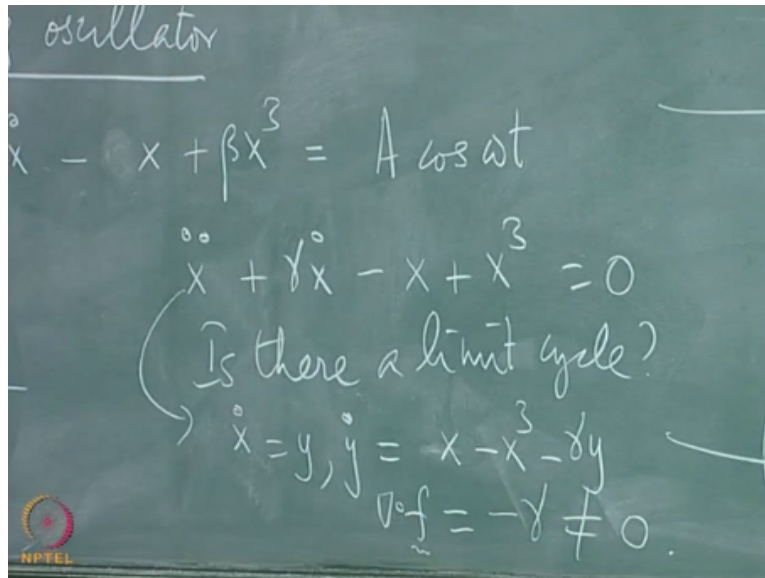 oscillator
ẋ - x + βx³ = A cos ωt
ẍ + γẋ - x + x³ = 0
Is there a limit cycle?
ẋ = y, ẏ = x - x³ - γy
∇·f = -γ ≠ 0.
NPTEL